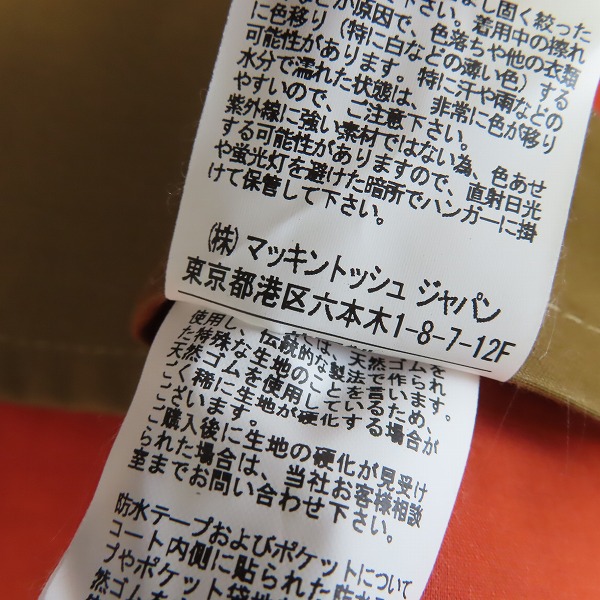 下さい。よし固く絞った
が原因で、着用中の擦れ
に色移り（特に白などの薄い色）する
可能性があります。特に汗や雨などの
水分で濡れた状態は、非常に色が移り
やすいので、ご注意下さい。
紫外線に強い素材ではない為、色あせ
する可能性がありますので、直射日光
や蛍光灯を避けた暗所でハンガーに掛
けて保管して下さい。
(株) マッキントッシュ ジャパン
東京都港区六本木1-8-7-12F
使用し、伝統的な製法で作られ
た特殊な生地のことを言います。
天然ゴムを使用しているため、
ごく稀に生地が硬化する場合が
ございます。
ご購入後に生地の硬化が見受け
られた場合は、当社お客様相談
室までお問い合わせ下さい。
防水テープおよびポケットについて
コート内側に貼られた防水テ
プやポケット袋地
然ゴムを